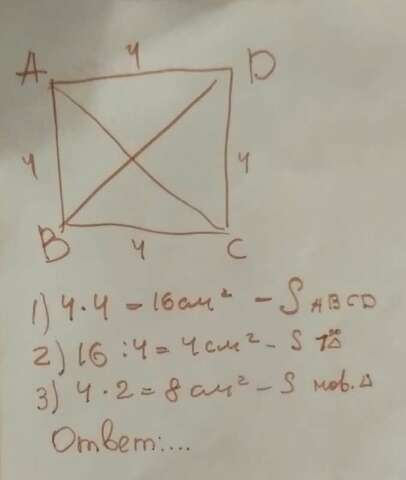 4
A D
4 4
B C
4
1) 4 · 4 = 16 см² - S ABCD
2) 16 : 4 = 4 см² - S 1 Δ
3) 4 · 2 = 8 см² - S нов. Δ
Ответ:....